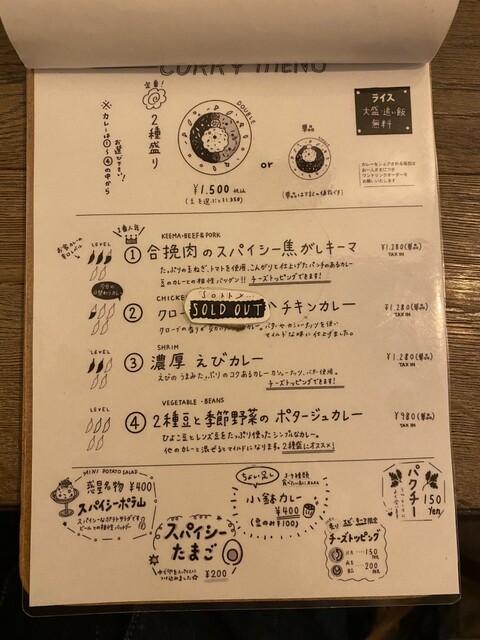 CURRY MENU
定番!
2種盛り
※カレーは①〜④の中から
お選び下さい!
DOUBLE
¥1,500 税込
or
単品
ライス
大盛・追い飯
無料
カレーをシェアされる場合は
お一人さまにつき
ワンドリンクオーダーを
お願いいたします
1番人気
KEEMA・BEEF & PORK
LEVEL
① 合挽肉のスパイシー焦がしキーマ
¥1,280(単品)
TAX IN
たっぷりの玉ねぎ、トマトを使用、こんがりと仕上げたパンチのあるカレー
豆のカレーとの相性バツグン!! チーズトッピングできます!
LEVEL
②
チキンカレー
SOLD OUT
¥1,280(単品)
TAX IN
マイルドな味に仕上げました。
SHRIM
LEVEL
③ 濃厚 えびカレー
¥1,280(単品)
TAX IN
えびのうまみたっぷりのコクあるカレー カシューナッツ、バター使用。
チーズトッピングできます!
VEGETABLE・BEANS
LEVEL
④ 2種豆と季節野菜の ポタージュカレー
¥980(単品)
TAX IN
ひよこ豆とレンズ豆をたっぷり使ったシンプルなカレー。
他のカレーと混ぜるとマイルドになります。2種盛にオススメ!
MINI POTATO SALAD
惑星名物 ¥400
スパイシーポテ山
スパイシーなポテトサラダです
ビールとの相性バッチリ!
スパイシー
たまご
¥200
ちょい足し
小鉢カレー
¥400
(豆のみ¥100)
パクチー
150
Yen
チーズトッピング
150
200